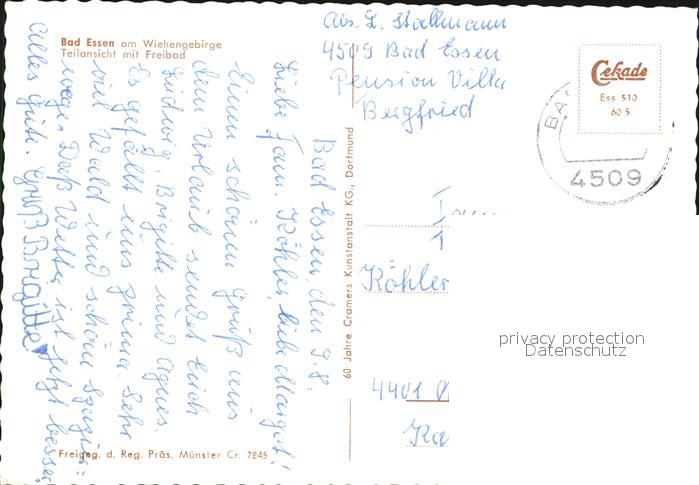 Bad Essen am Wiehengebirge
Teilansicht mit Freibad
Abs. L. Stallmann
4509 Bad Essen
Pension Villa
Bergfried
Cekade
Ess 510
60 S
BA
4509
Bad Essen, den 9.8.
Liebe Fam. Köhler, liebe Margot!
Einen schönen Gruß aus
dem Urlaub sendet Euch
Ludwig, Brigitte und Agnes.
Es gefällt uns prima. Sehr
viel Wald und schöne Spazier=
wege. Daß Wetter ist jetzt besser,
Alles Gute. Gruß Brigitte
60 Jahre Cramers Kunstanstalt KG., Dortmund
Köhler
4401
Ka
privacy protection
Datenschutz
Freigeg. d. Reg. Präs. Münster Cr. 7245